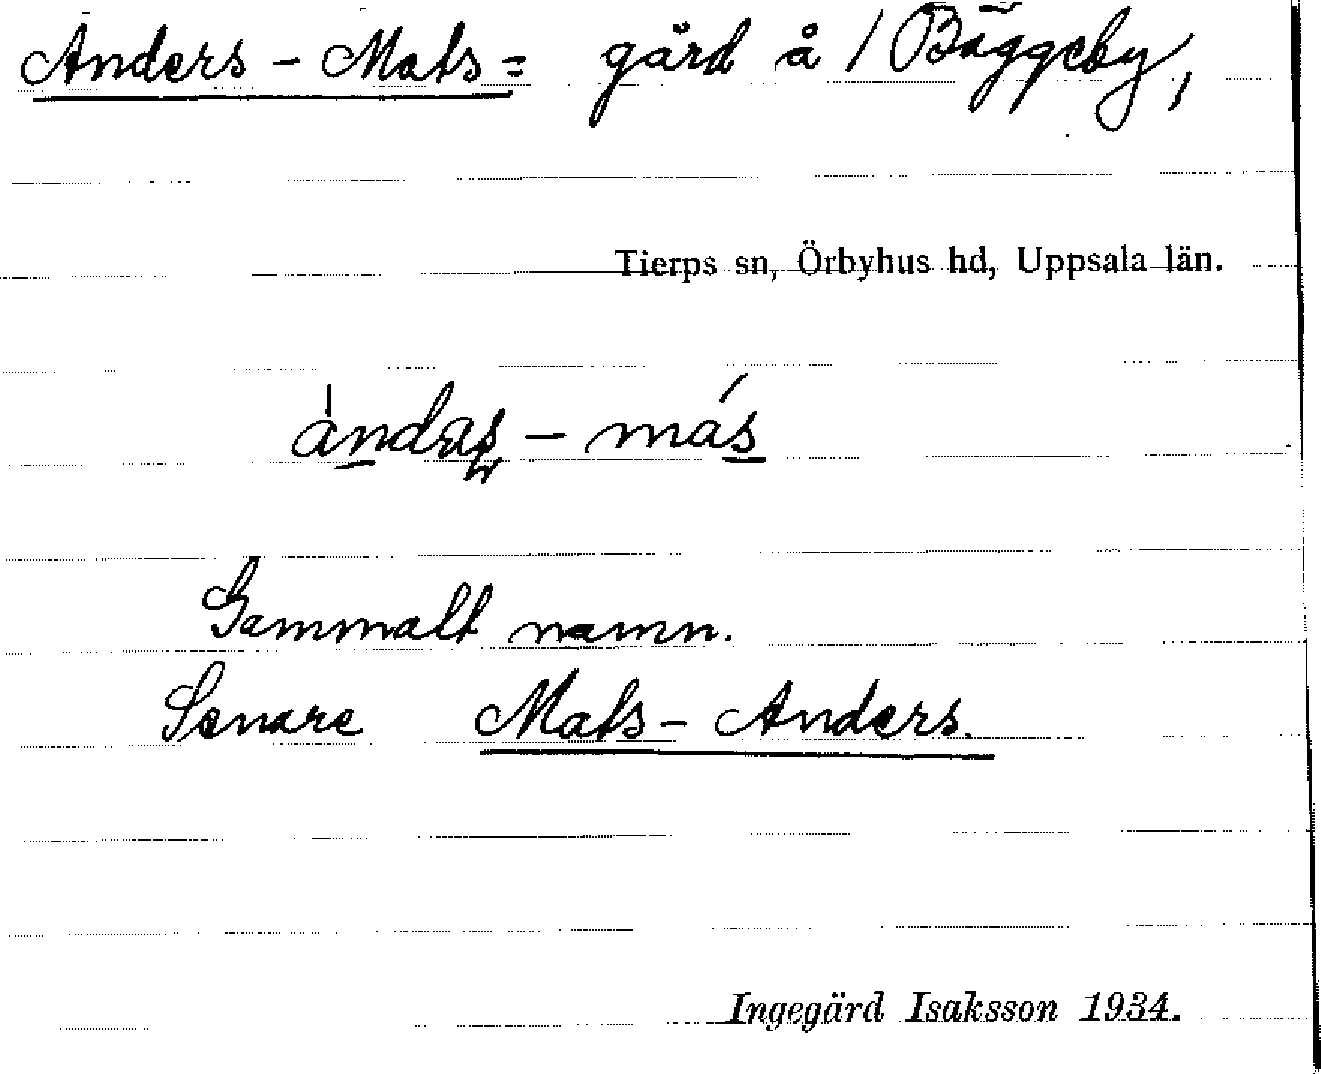 Anders-Mats= gård å /Bäggeby,
Tierps sn, Örbyhus hd, Uppsala län.
Gammalt namn.
Senare Mats-Anders.
Ingegärd Isaksson 1934.